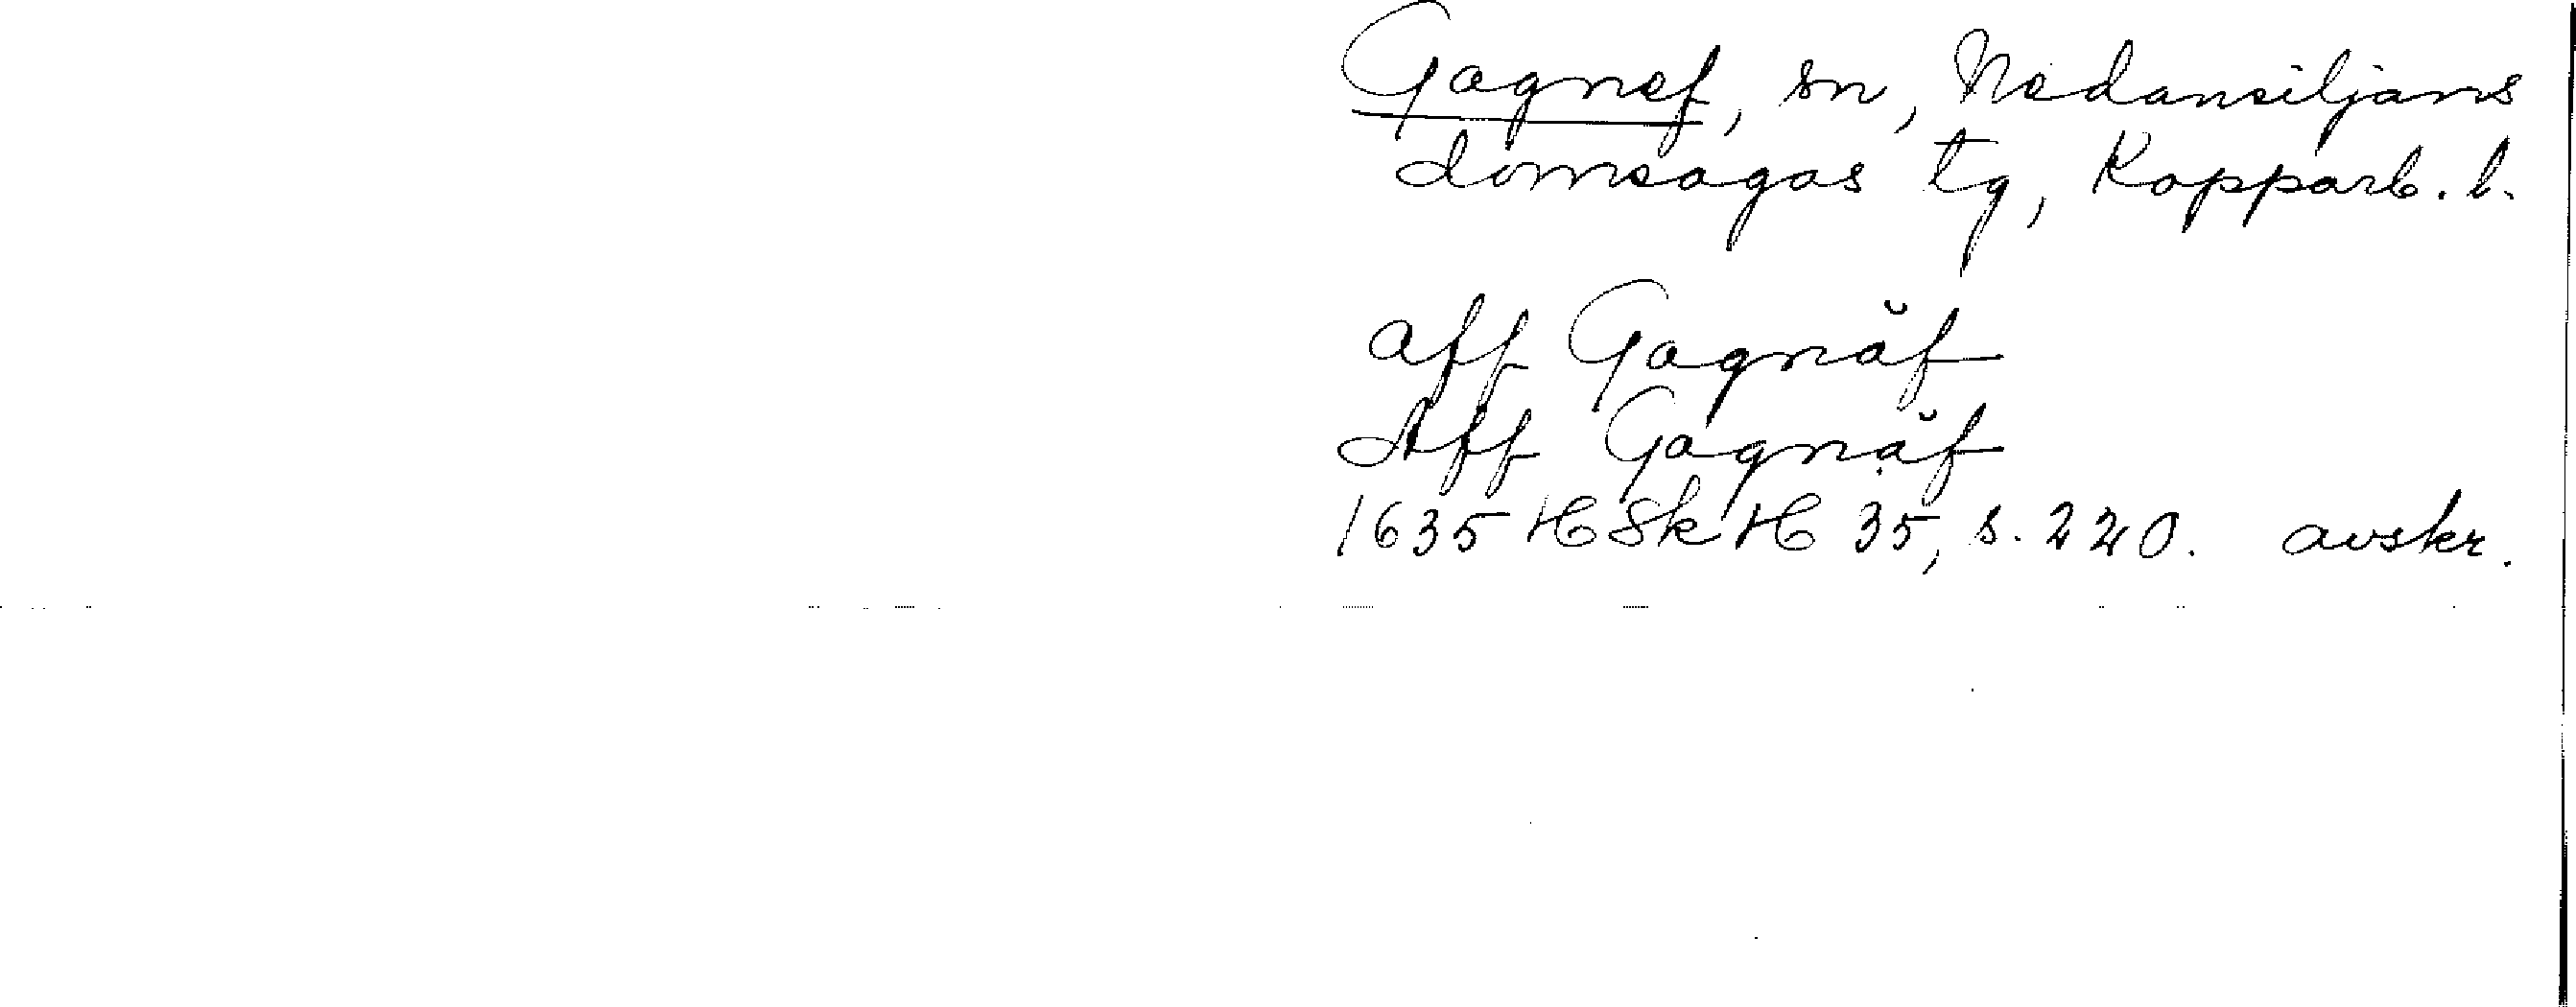 Gagnef, sn, Nedansiljans
domsagas tg, Kopparb. l.
aff Gagnăf
Aff Gagnăf
1635 HSkH 35, s. 220. avskr.